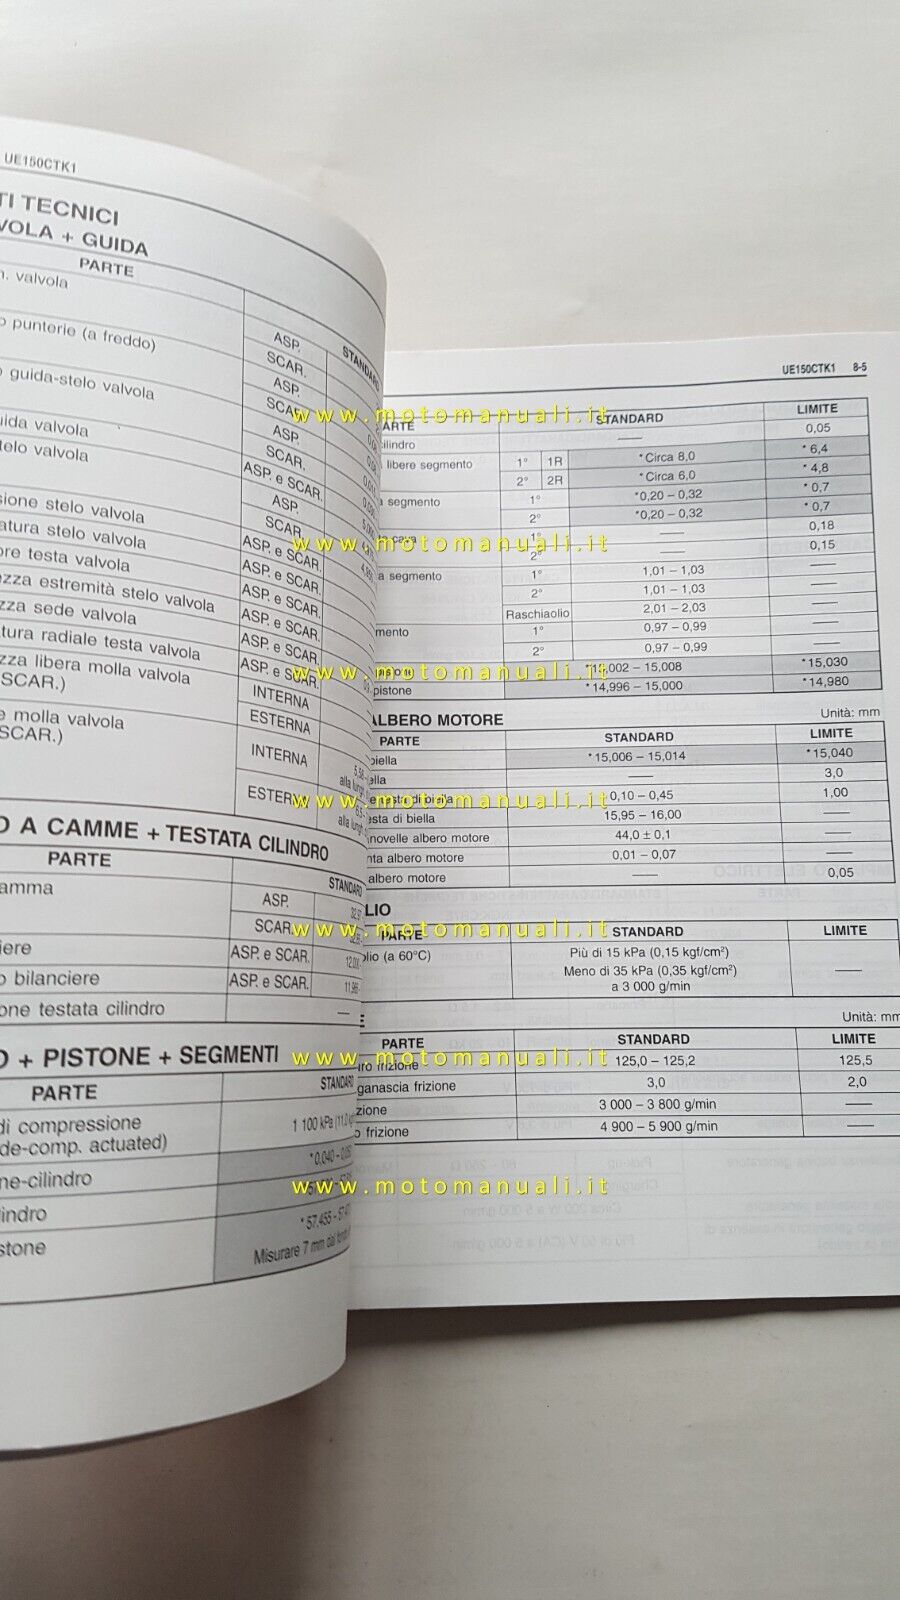 UE150CTK1
TI TECNICI
VOLA + GUIDA
PARTE
STANDARD
n. valvola
ASP.
SCAR.
o punterie (a freddo)
ASP.
SCAR.
o guida-stelo valvola
ASP.
SCAR.
uida valvola
ASP. e SCAR.
telo valvola
ASP.
SCAR.
sione stelo valvola
ASP. e SCAR.
atura stelo valvola
ASP. e SCAR.
ore testa valvola
ASP. e SCAR.
ezza estremità stelo valvola
ASP. e SCAR.
zza sede valvola
ASP. e SCAR.
tura radiale testa valvola
ASP. e SCAR.
zza libera molla valvola
SCAR.)
INTERNA
ESTERNA
e molla valvola
SCAR.)
INTERNA
ESTERNA
O A CAMME + TESTATA CILINDRO
PARTE
STANDARD
amma
ASP.
SCAR.
iere
ASP. e SCAR.
o bilanciere
ASP. e SCAR.
one testata cilindro
—
O + PISTONE + SEGMENTI
PARTE
STANDARD
di compressione
de-comp. actuated)
1 100 kPa
ne-cilindro
indro
stone
*57.455 -
Misurare 7 mm dal
UE150CTK1 8-5
ARTE STANDARD LIMITE
cilindro —— 0,05
libere segmento 1° 1R *Circa 8,0 *6,4
2° 2R *Circa 6,0 *4,8
a segmento 1° *0,20 – 0,32 *0,7
2° *0,20 – 0,32 *0,7
cava 1° —— 0,18
2° —— 0,15
a segmento 1° 1,01 – 1,03 ——
2° 1,01 – 1,03 ——
Raschiaolio 2,01 – 2,03 ——
mento 1° 0,97 – 0,99 ——
2° 0,97 – 0,99 ——
pistone *15,002 – 15,008 *15,030
pistone *14,996 – 15,000 *14,980
ALBERO MOTORE
Unità: mm
PARTE STANDARD LIMITE
biella *15,006 – 15,014 *15,040
ella —— 3,0
e testa di biella 0,10 – 0,45 1,00
esta di biella 15,95 – 16,00 ——
novelle albero motore 44,0 ± 0,1 ——
nta albero motore 0,01 – 0,07 ——
albero motore —— 0,05
LIO
PARTE STANDARD LIMITE
olio (a 60°C) Più di 15 kPa (0,15 kgf/cm²)
Meno di 35 kPa (0,35 kgf/cm²) ——
a 3 000 g/min
E
Unità: mm
PARTE STANDARD LIMITE
ro frizione 125,0 – 125,2 125,5
ganascia frizione 3,0 2,0
zione 3 000 – 3 800 g/min ——
o frizione 4 900 – 5 900 g/min ——
www.motomanuali.it
www.motomanuali.it
www.motomanuali.it
www.motomanuali.it
www.motomanuali.it
www.motomanuali.it
www.motomanuali.it